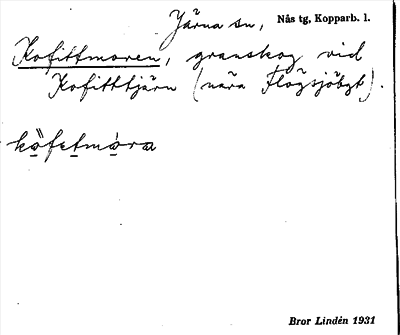 Järna sn, Nås tg, Kopparb. l.
Kofittmoren, granskog vid
Kofittjärn (nära Flögsjöbgt).
kö̀fıtmòra
Bror Lindén 1931